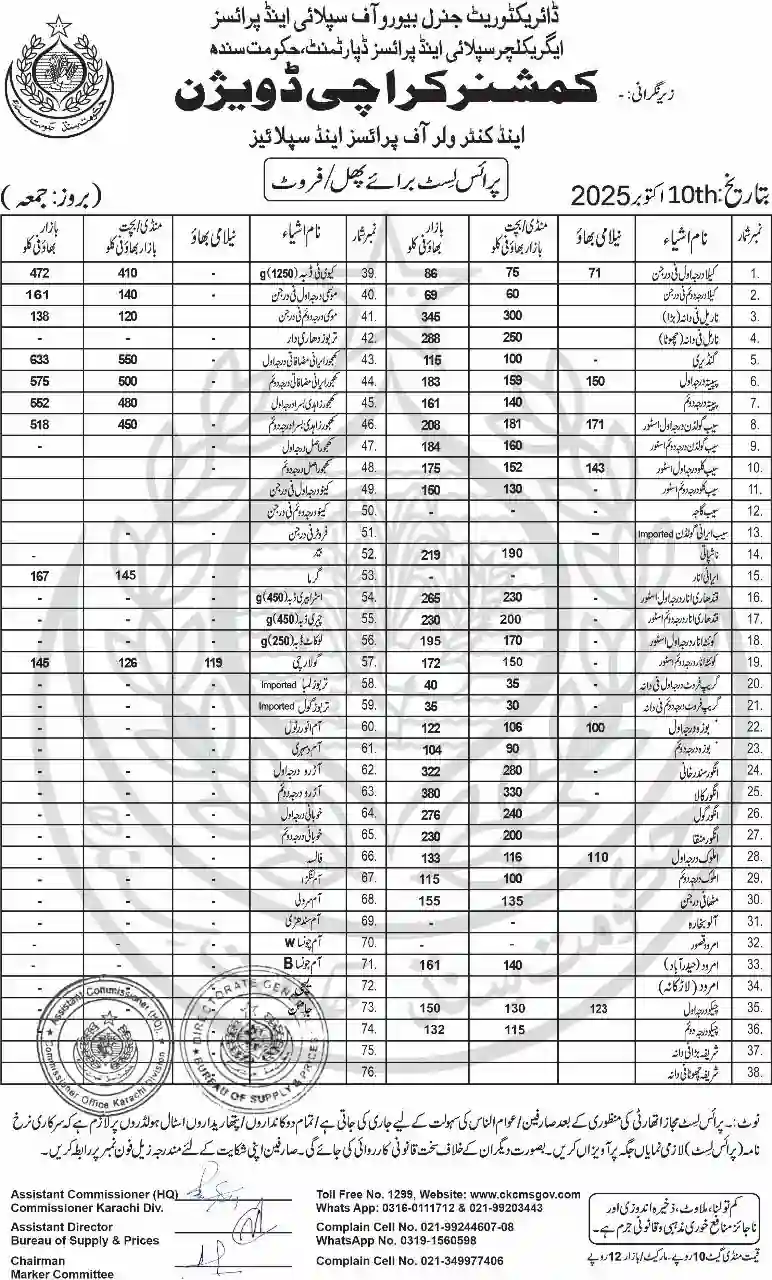 ڈائریکٹوریٹ جنرل بیورو آف سپلائی اینڈ پرائسز
ایگریکلچر سپلائی اینڈ پرائسز ڈپارٹمنٹ، حکومت سندھ
زیر نگرانی:-
کمشنر کراچی ڈویژن
اینڈ کنٹرولر آف پرائسز اینڈ سپلائیز
پرائس لسٹ برائے پھل/فروٹ
بتاریخ: 10th اکتوبر 2025
(بروز: جمعہ)
نمبر شمار نام اشیاء نیلامی بھاؤ منڈی/بچت بازار بھاؤ فی کلو بازار بھاؤ فی کلو
1. کیلا درجہ اول فی درجن 71 75 86
2. کیلا درجہ دوئم فی درجن 60 69
3. ناریل فی دانہ (بڑا) 300 345
4. ناریل فی دانہ (چھوٹا) 250 288
5. گنڈیری - 100 115
6. پپیتہ درجہ اول 150 159 183
7. پپیتہ درجہ دوئم 140 161
8. سیب گولڈن درجہ اول اسٹور 171 181 208
9. سیب گولڈن درجہ دوئم اسٹور 160 184
10. سیب کلو درجہ اول اسٹور 143 152 175
11. سیب کلو درجہ دوئم اسٹور - 130 150
12. سیب گاجہ - -
13. سیب ایرانی گولڈن Imported -
14. ناشپاتی 190 219
15. ایرانی انار - -
16. قندھاری انار درجہ اول اسٹور - 230 265
17. قندھاری انار درجہ دوئم اسٹور - 200 230
18. کوئٹہ انار درجہ اول اسٹور - 170 195
19. کوئٹہ انار درجہ دوئم اسٹور - 150 172
20. گریپ فروٹ درجہ اول فی دانہ - 35 40
21. گریپ فروٹ درجہ دوئم فی دانہ - 30 35
22. بوزہ درجہ اول 100 106 122
23. بوزہ درجہ دوئم 90 104
24. انگور سندرخانی - 280 322
25. انگور کالا - 330 380
26. انگور گول 240 276
27. انگور منقا 200 230
28. املوک درجہ اول 110 116 133
29. املوک درجہ دوئم 100 115
30. مٹھا فی درجن 135 155
31. آلو بخارہ - -
32. امرود قصور - -
33. امرود (حیدرآباد) 140 161
34. امرود (لاڑکانہ)
35. چیکو درجہ اول 123 130 150
36. چیکو درجہ دوئم 115 132
37. شریفہ بڑا فی دانہ
38. شریفہ چھوٹا فی دانہ
نمبر شمار نام اشیاء نیلامی بھاؤ منڈی/بچت بازار بھاؤ فی کلو بازار بھاؤ فی کلو
39. کیوی فی ڈبہ (1250)g - 410 472
40. موسمی درجہ اول فی درجن - 140 161
41. موسمی درجہ دوئم فی درجن - 120 138
42. تربوز دھاری دار -
43. کھجور ایرانی مضافاتی درجہ اول - 550 633
44. کھجور ایرانی مضافاتی درجہ دوئم - 500 575
45. کھجور زاہدی بسرا درجہ اول - 480 552
46. کھجور زاہدی بسرا درجہ دوئم - 450 518
47. کھجور اصل درجہ اول - - -
48. کھجور اصل درجہ دوئم - - -
49. کینو درجہ اول فی درجن
50. کینو درجہ دوئم فی درجن
51. فروٹر فی درجن - -
52. بیر - -
53. گرما - 145 167
54. اسٹرابیری ڈبہ (450)g - - -
55. چیری ڈبہ (450)g - - -
56. لوکاٹ ڈبہ (250)g - - -
57. گولارچی 119 126 145
58. تربوز لمبا Imported - -
59. تربوز گول Imported - -
60. آم انور رٹول - - -
61. آم دسہری - - -
62. آڑو درجہ اول - -
63. آڑو درجہ دوئم - -
64. خوبانی درجہ اول - -
65. خوبانی درجہ دوئم - -
66. فالسہ - -
67. آم لنگڑا - -
68. آم سرولی - -
69. آم سندھڑی - -
70. آم چونسا W - - -
71. آم چونسا B - - -
72. لیچی
73. جامن
74.
75.
76.
Assistant Commissioner (HQ).
Commissioner Office Karachi Division
DIRECTORATE GENERAL
BUREAU OF SUPPLY & PRICES
نوٹ:- پرائس لسٹ مجاز اتھارٹی کی منظوری کے بعد صارفین/عوام الناس کی سہولت کے لیے جاری کی جاتی ہے/تمام دوکانداروں/پتھاریداروں/اسٹال ہولڈروں پر لازم ہے کہ سرکاری نرخ
نامہ (پرائس لسٹ) لازمی نمایاں جگہ پر آویزاں کریں۔ بصورت دیگر ان کے خلاف سخت قانونی کارروائی کی جائے گی۔ صارفین اپنی شکایت کے لئے مندرجہ زیل فون نمبر پر رابطہ کریں۔
Assistant Commissioner (HQ)
Commissioner Karachi Div.
Assistant Director
Bureau of Supply & Prices
Chairman
Marker Committee
Toll Free No. 1299, Website: www.ckcmsgov.com
Whats App: 0316-0111712 & 021-99203443
Complain Cell No. 021-99244607-08
WhatsApp No. 0319-1560598
Complain Cell No. 021-349977406
کم تولنا، ملاوٹ، ذخیرہ اندوزی اور
ناجائز منافع خوری مذہبی و قانونی جرم ہے۔
قیمت منڈی گیٹ 10 روپے۔ مارکیٹ/بازار 12 روپے